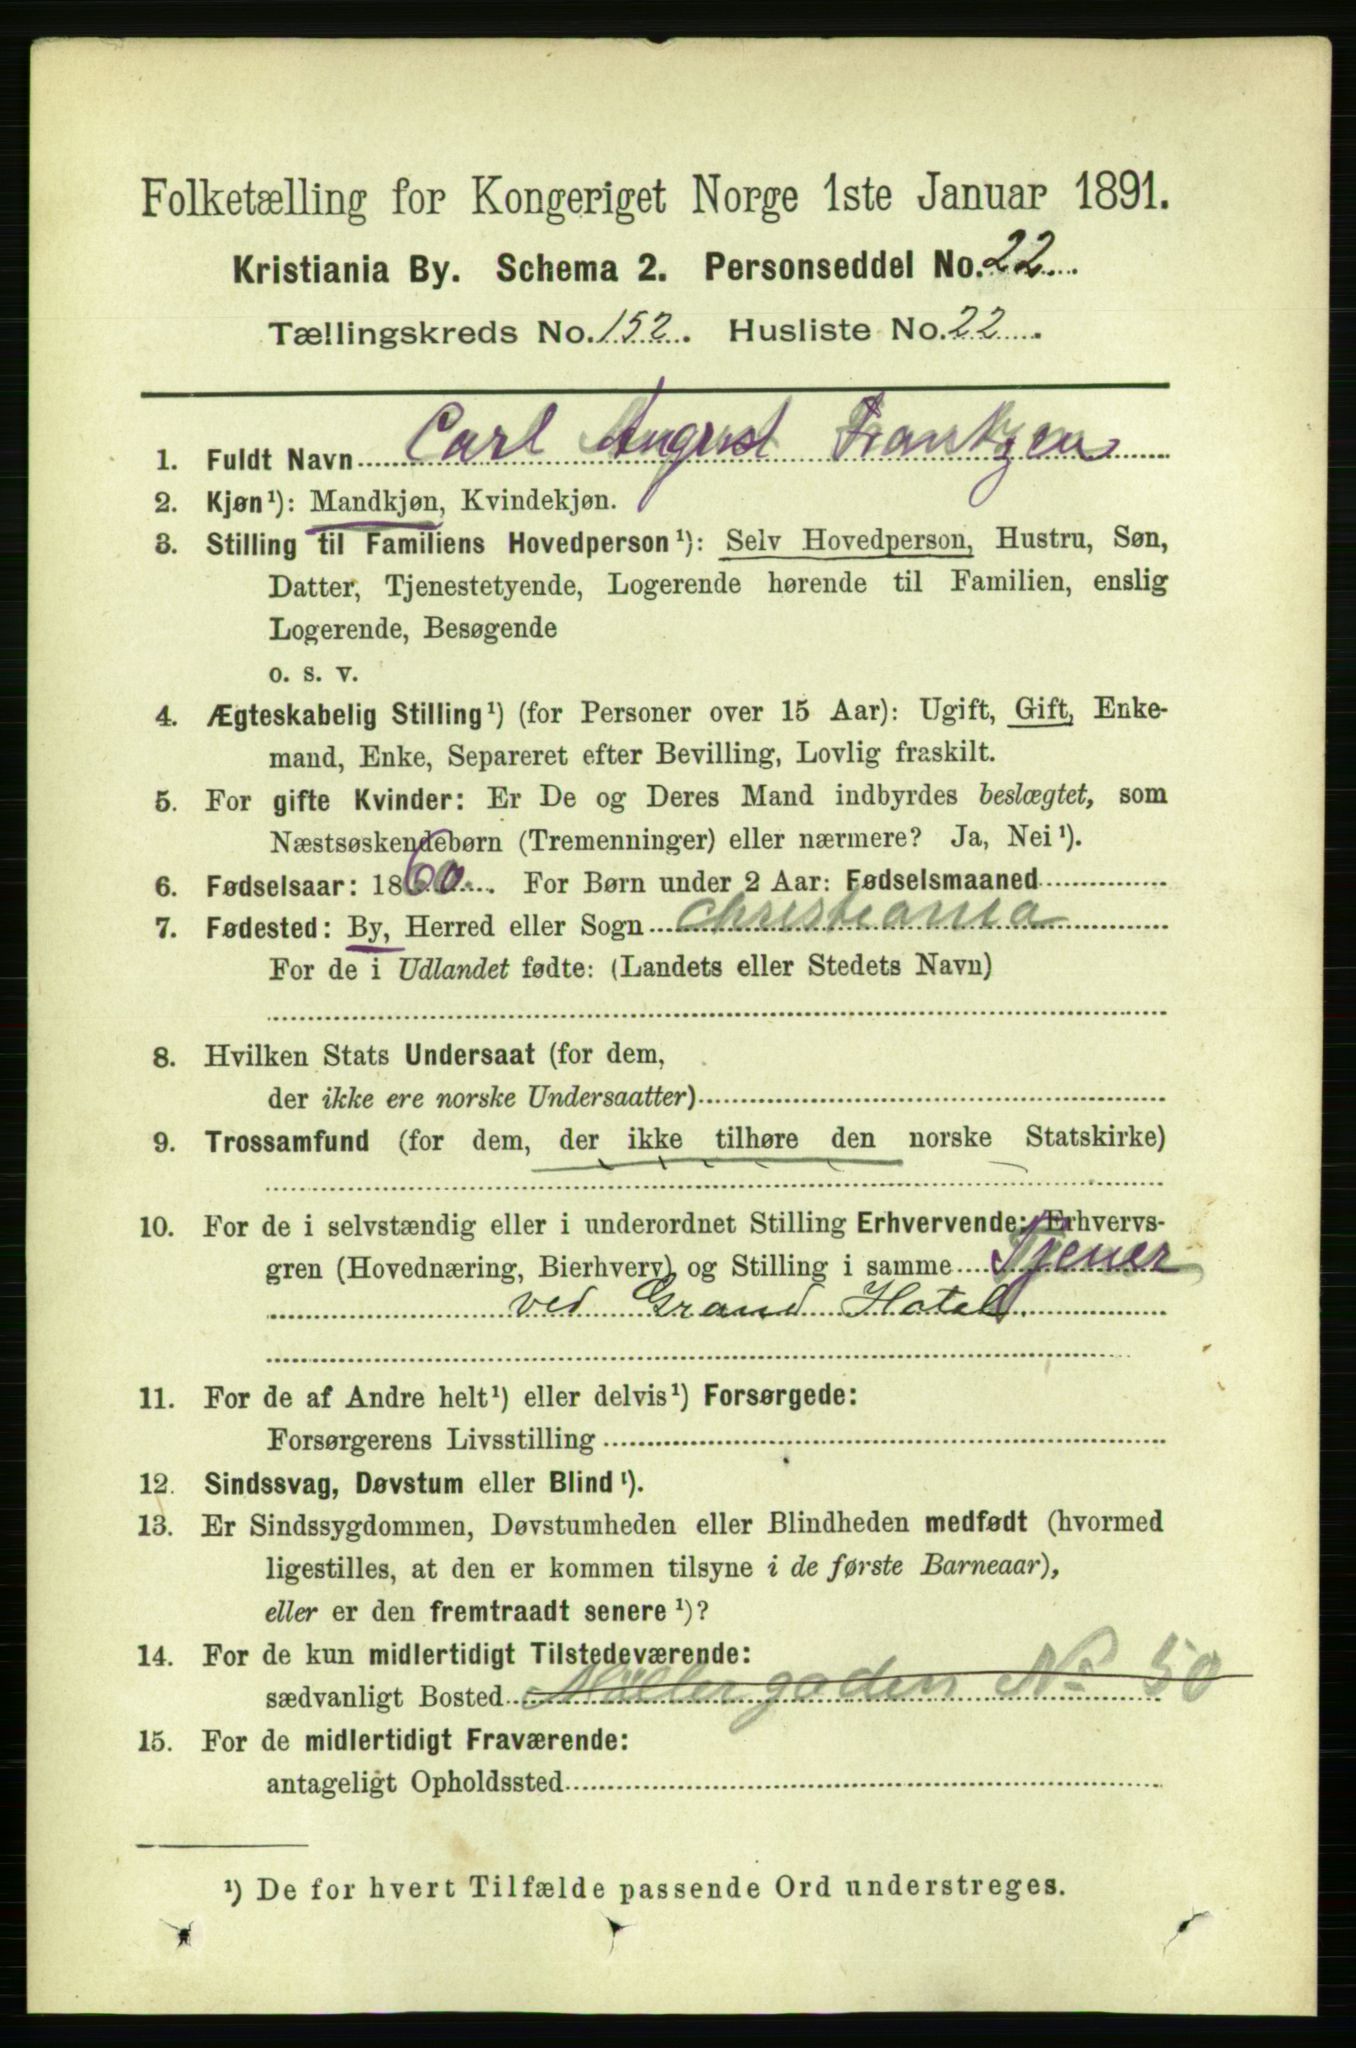 Folketælling for Kongeriget Norge 1ste Januar 1891.
Kristiania By. Schema 2. Personseddel No. 22
Tællingskreds No. 152. Husliste No. 22
1. Fuldt Navn Carl August Frantzen
2. Kjøn¹): Mandkjøn, Kvindekjøn.
3. Stilling til Familiens Hovedperson¹): Selv Hovedperson, Hustru, Søn,
Datter, Tjenestetyende, Logerende hørende til Familien, enslig
Logerende, Besøgende
o. s. v.
4. Ægteskabelig Stilling¹) (for Personer over 15 Aar): Ugift, Gift, Enke-
mand, Enke, Separeret efter Bevilling, Lovlig fraskilt.
5. For gifte Kvinder: Er De og Deres Mand indbyrdes beslægtet, som
Næstsøskendebørn (Tremenninger) eller nærmere? Ja, Nei¹).
6. Fødselsaar: 1860. For Børn under 2 Aar: Fødselsmaaned
7. Fødested: By, Herred eller Sogn Christiania
For de i Udlandet fødte: (Landets eller Stedets Navn)
8. Hvilken Stats Undersaat (for dem,
der ikke ere norske Undersaatter)
9. Trossamfund (for dem, der ikke tilhøre den norske Statskirke)
10. For de i selvstændig eller i underordnet Stilling Erhvervende: Erhvervs-
gren (Hovednæring, Bierhverv) og Stilling i samme Tjener
ved Grand Hotel
11. For de af Andre helt¹) eller delvis¹) Forsørgede:
Forsørgerens Livsstilling
12. Sindssvag, Døvstum eller Blind¹).
13. Er Sindssygdommen, Døvstumheden eller Blindheden medfødt (hvormed
ligestilles, at den er kommen tilsyne i de første Barneaar),
eller er den fremtraadt senere¹)?
14. For de kun midlertidigt Tilstedeværende:
sædvanligt Bosted Møllergaden No 50
15. For de midlertidigt Fraværende:
antageligt Opholdssted
¹) De for hvert Tilfælde passende Ord understreges.